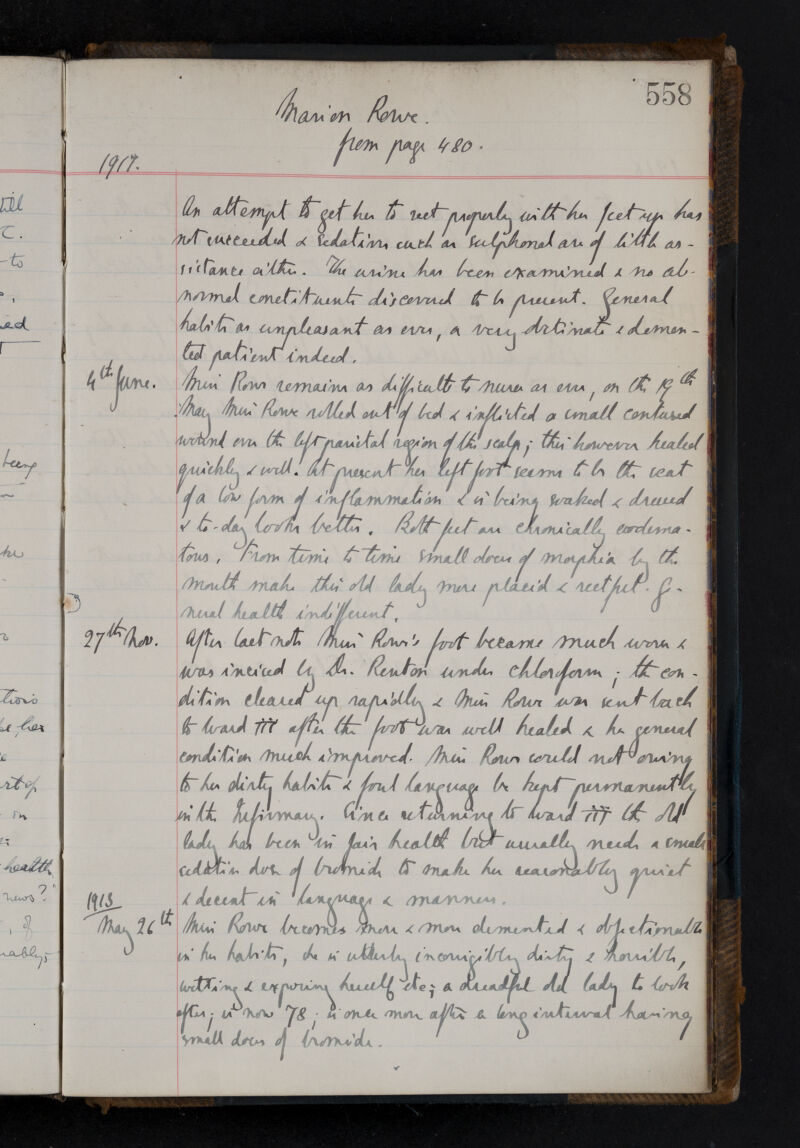 558
Marion Rowe.
from page 480.
1917.
An attempt to get her to rest properly with her feet up has
not succeeded & sedatives such as sulphonal are of little as-
sistance either. The urine has been examined & no ab-
normal constituents discovered to be present. General
habits as unpleasant as ever, a very obstinate & demen-
ted patient indeed.
4th June. Miss Rowe remains as difficult to nurse as ever, on the 19th
May Miss Rowe rolled out of bed & inflicted a small contused
wound over the left parietal region of the scalp; this however healed
quickly & well. At present her left foot seems to be the seat
of a low form of inflammation & is being soaked & dressed
& to-day looks better. Both feet are chronically oedema-
tous. From time to time small doses of morphia by the
mouth make this old lady more placid & restful. Ge-
neral health indifferent.
27th Nov. After last note Miss Rowe's foot became much worse &
was incised by Dr. Renton under chloroform; the con-
dition cleared up rapidly & Miss Rowe was sent back
to ward III after the foot was well healed & her general
condition much improved. Miss Rowe could not owing
to her dirty habits & foul language be kept permanently
in the Infirmary. Since returning to ward III the old
lady has been in fair health but usually needs a small
sedative dose of bromide to make her reasonably quiet
& decent in language & manners.
1913
May 26th Miss Rowe becomes more & more demented & objectionable
in her habits, she is utterly incorrigibly dirty & horrible,
wetting & exposing herself etc; a dreadful old lady to look
after; is now 78; is once more after a long interval having
small doses of bromide.
till
C.
to
being
her
on
health
news?
of